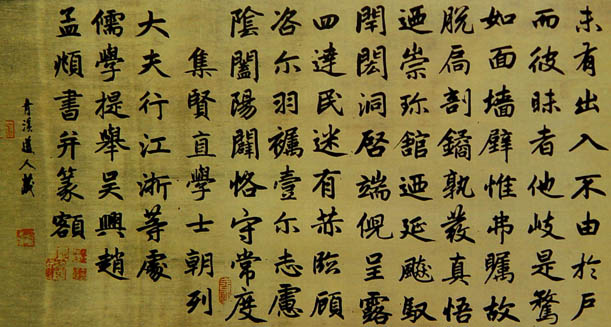 未有出入不由於戶
而彼昧者他岐是騖
如面墻壁惟弗矚故
脫扃剖鐍孰發真悟
迺崇珎館迺延飈馭
閈閎洞啓端倪呈露
四達民迷有恭臨顧
咨尓羽襹壹尓志慮
陰闔陽闢恪守常度
集賢直學士朝列
大夫行江浙等處
儒學提舉吳興趙
孟頫書并篆額
青溪道人藏